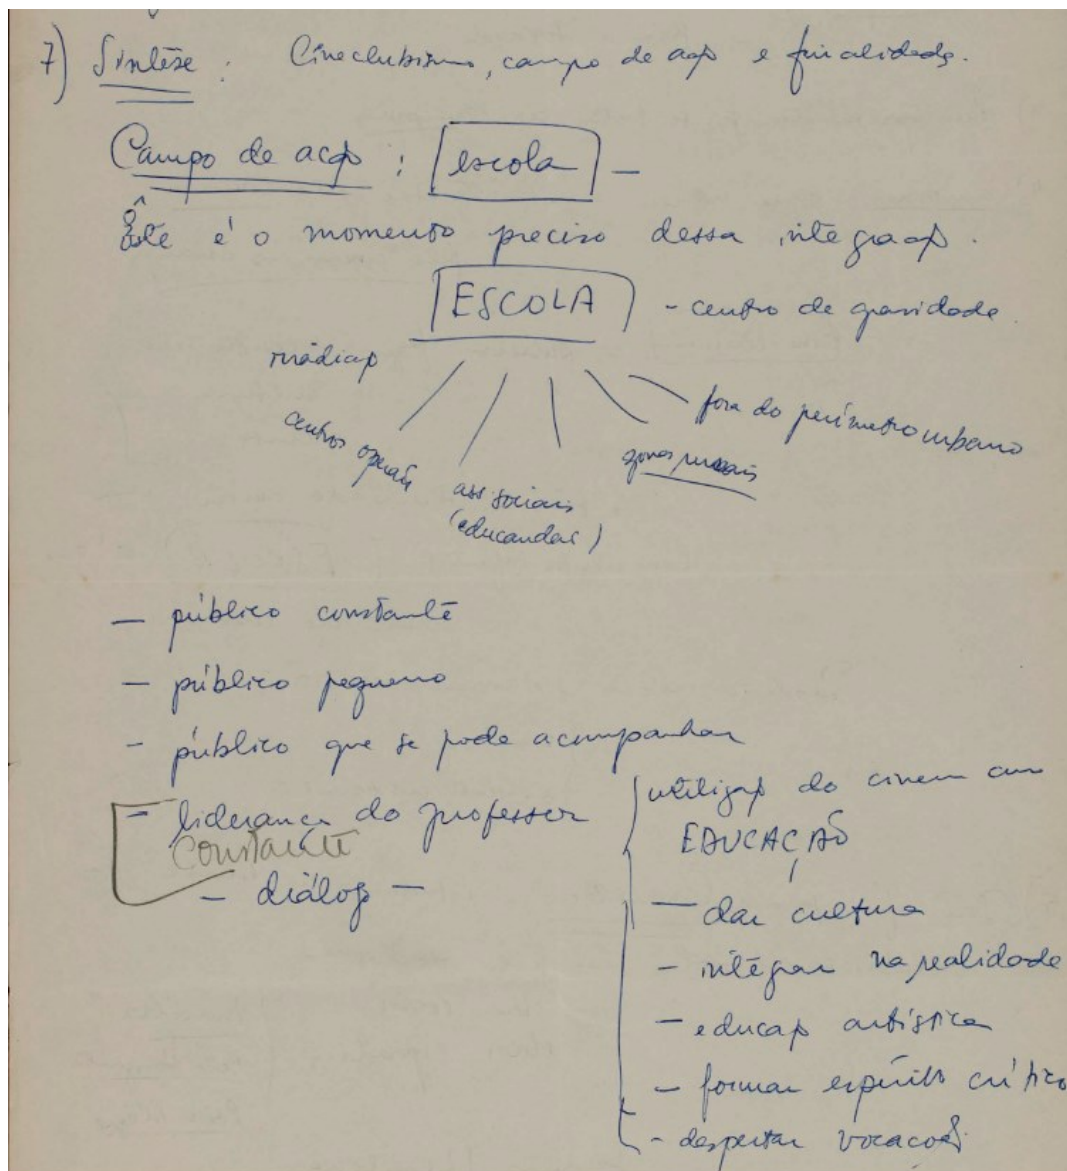 7) Síntese : Cineclubismo, campo de ação e finalidade.
Campo de acção : escola —
Êste é o momento preciso dessa integração.
ESCOLA - centro de gravidade
irradiação
centros operár.
ass. sociais
(educandas)
zonas rurais
fora do perímetro urbano
— público constante
— público pequeno
- público que se pode acompanhar
- liderança do professor
constante
- diálogo -
utilização do cinema em
EDUCAÇÃO
— dar cultura
- integrar na realidade
- educação artística
- formar espírito crítico
- despertar vocações